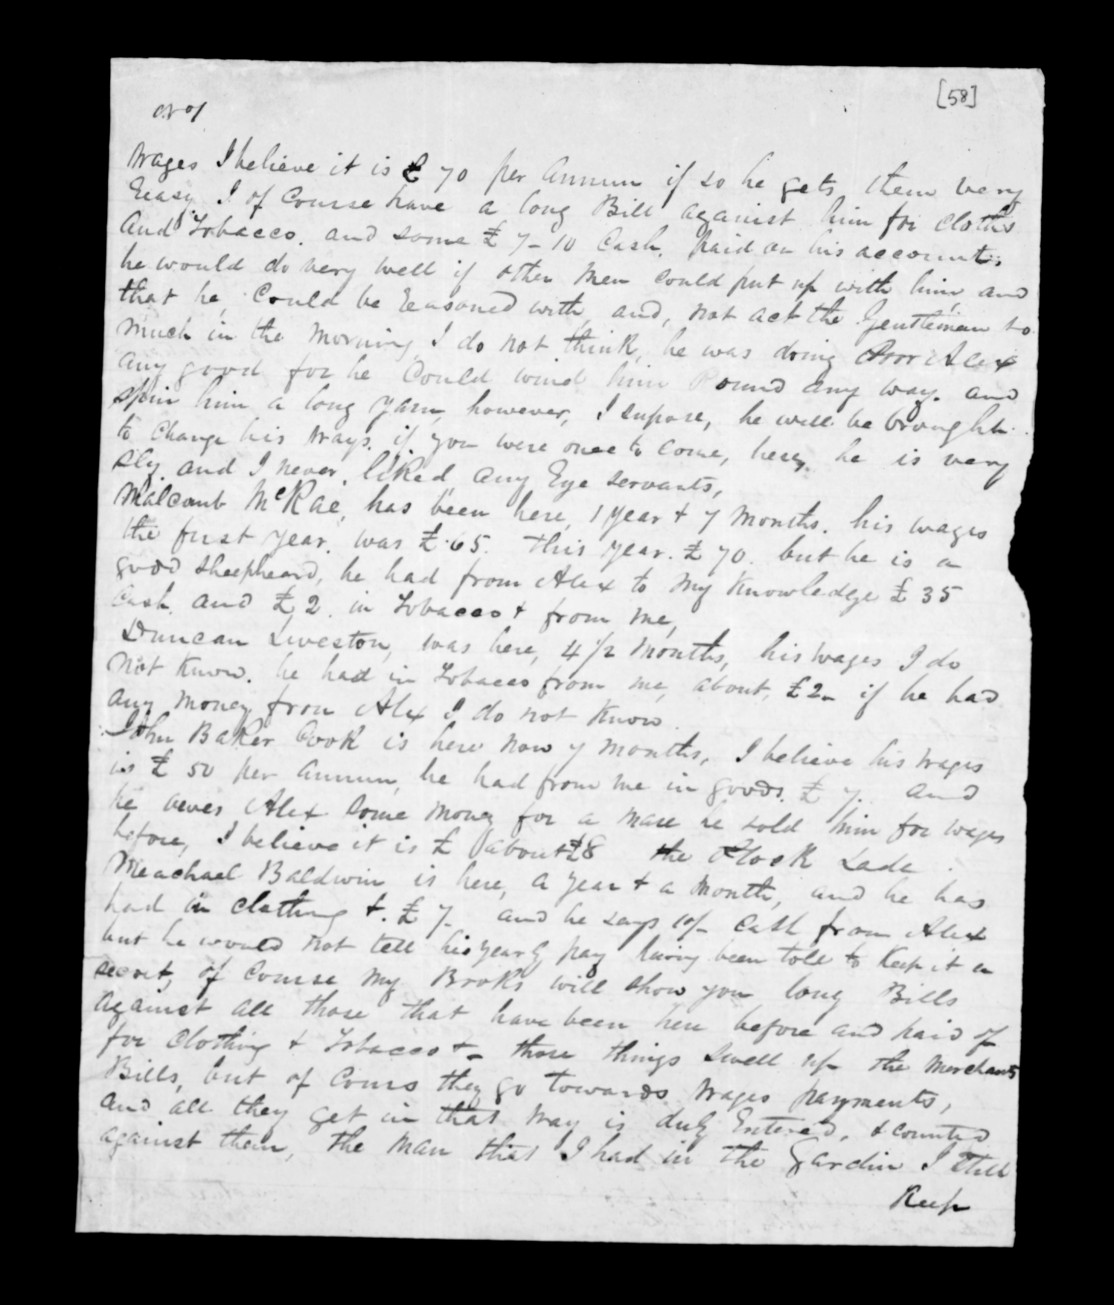 [58]
wages I believe it is £ 70 per Annum if so he gets them very
Eeasy I of Course have a long Bill against him for cloths
and Tobacco. and some £ 7-10 Cash. paid on his account.
he would do very well if other men could put up with him, and
that he, Could be Reasoned with, and, not act the Gentleman so
much in the morning, I do not think, he was doing Poor Alex
any good for he Could wind him Round any way. and
spin him a long yarn, however, I supose, he will be brought
to change his ways. if you were once to come, here, he is very
sly and I never, liked any Eye servants,
Malcomb McRae, has been here, 1 year & 7 Months. his wages
the first year. was £ 65. this year. £ 70. but he is a
good sheepheard, he had from Alex to my Knowledge £ 35
Cash. and £ 2. in Tobacco & from me,
Duncan Liveston, was here, 4 1/2 Months, his wages I do
not know. he had in Tobacco from me, about, £2- if he had
any money from Alex I do not know.
John Baker Cook is here now 7 months, I believe his wages
is £ 50 per annum, he had from me in goods. £ 7. and
he owes Alex some money for a mare he sold him for wages
before, I believe it is £ about £8 the Flock Lade.
Meachael Baldwin is here, a year & a Month, and he has
had in clothing &. £ 7- and he says of Cash from Alex
but he would not tell his yearly pay having been told to Keep it a
secret, of Course my Books will show you, long Bills
against all those that have been here before and paid of
for Clothing & Tobacco &- those things swell up the Merchants
Bills, but of Cours they go towards wages payments,
and all they get in that way is duly Entered, & counted
against them, the man that I had in the Gardin I still
Keep